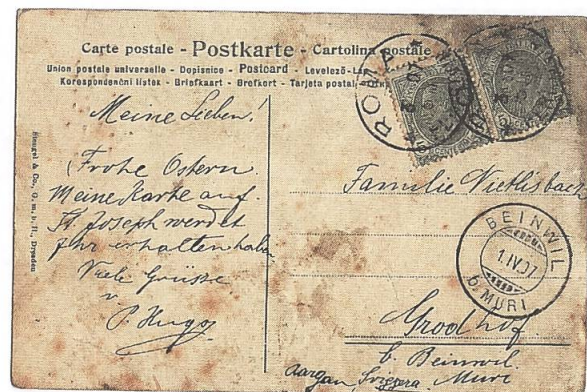 Carte postale - Postkarte - Cartolina postale
Union postale universelle - Dopisnice - Postcard - Levelező-La
Korespondenční lístek - Briefkaart - Brefkort - Tarjeta postal
ROMA
Meine Lieben!
Frohe Ostern.
Meine Karte auf
St. Joseph werdet
Ihr erhalten haben
Viele Grüsse
v
P. Hugo
Stengel & Co., G. m. b. H., Dresden
Familie Vietlisbach
BEINWIL
1.IV.07
b. MURI
Grodhof
b. Beinwil
Aargau, Svizzera Muri